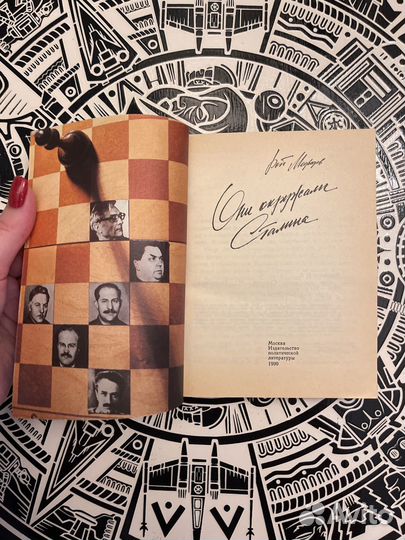 Рой Медведев
Они окружали
Сталина
Москва
Издательство
политической
литературы
1990
Avito